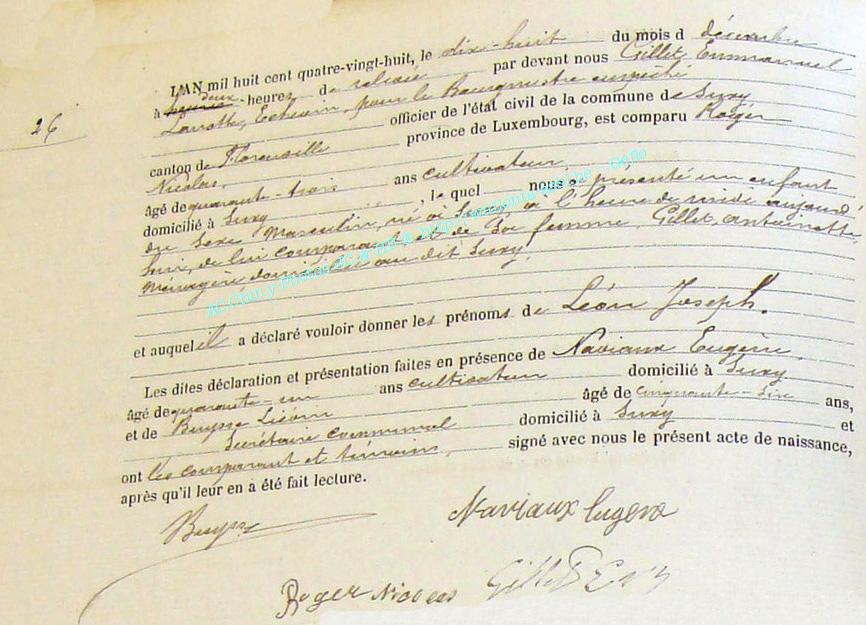 L'AN mil huit cent quatre-vingt-huit, le dix-huit du mois d décembre
à deux heures de relevée par devant nous Gillet Emmanuel
Echevin, pour le Bourgmestre empêché
26
officier de l'état civil de la commune de Suxy
canton de Florenville province de Luxembourg, est comparu Roger
Nicolas,
âgé de quarante-trois ans cultivateur
domicilié à Suxy, le quel nous a présenté un enfant
du sexe masculin, né à Suxy à l'heure de midi aujourd'
hui, de lui comparant et de Son femme, Gillet, Antoinette
Ménagère, domiciliés au dit Suxy,
et auquel il a déclaré vouloir donner les prénoms de Léon Joseph.
Les dites déclaration et présentation faites en présence de Naviaux Eugène,
âgé de quarante-un ans cultivateur domicilié à Suxy
et de Buysse âgé de cinquante-six ans,
Secrétaire communal domicilié à Suxy et
ont les comparant et témoins, signé avec nous le présent acte de naissance,
après qu'il leur en a été fait lecture.
Buysse
Naviaux Eugene
Roger Nicolas